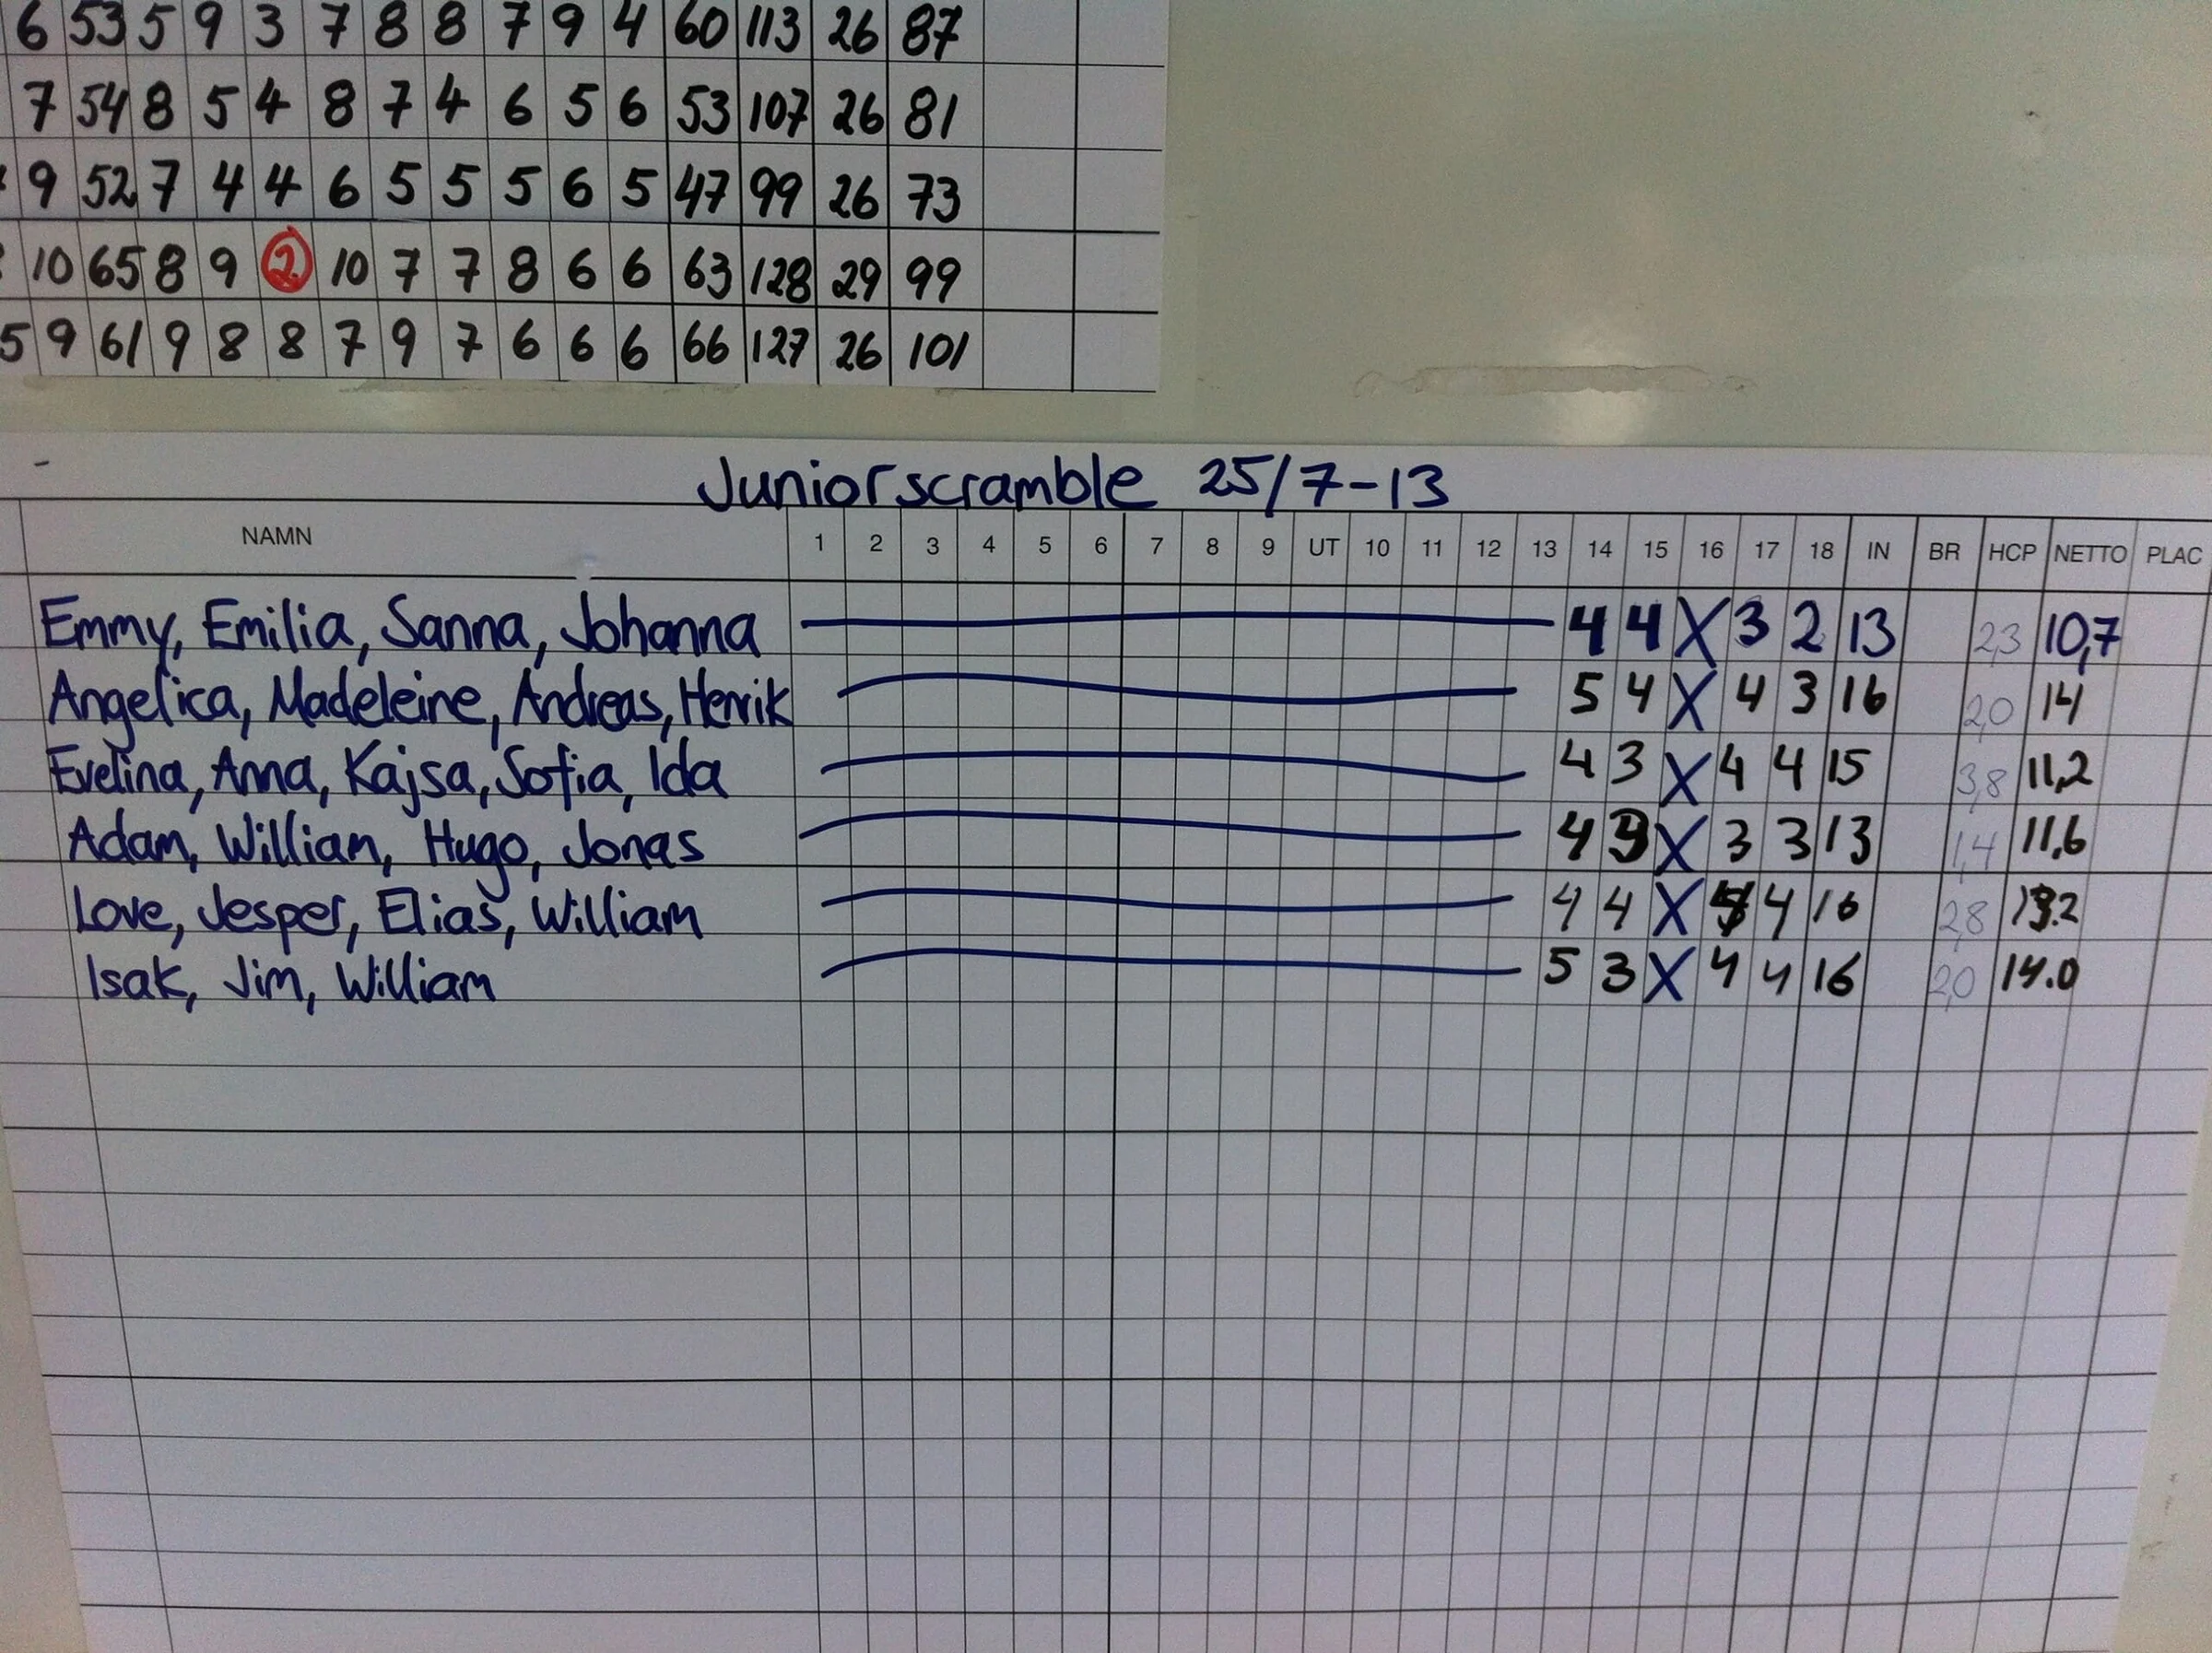 6 53 5 9 3 7 8 8 7 9 4 60 113 26 87
7 54 8 5 4 8 7 4 6 5 6 53 107 26 81
9 52 7 4 4 6 5 5 5 6 5 47 99 26 73
10 65 8 9 2 10 7 7 8 6 6 63 128 29 99
5 9 61 9 8 8 7 9 7 6 6 6 66 127 26 101
Juniorscramble 25/7-13
NAMN 1 2 3 4 5 6 7 8 9 UT 10 11 12 13 14 15 16 17 18 IN BR HCP NETTO PLAC
Emmy, Emilia, Sanna, Johanna 4 4 X 3 2 13 2,3 10,7
Angelica, Madeleine, Andreas, Henrik 5 4 X 4 3 16 2,0 14
Evelina, Anna, Kajsa, Sofia, Ida 4 3 X 4 4 15 3,8 11,2
Adam, William, Hugo, Jonas 4 3 X 3 3 13 1,4 11,6
Love, Jesper, Elias, William 4 4 X 4 4 16 2,8 13.2
Isak, Jim, William 5 3 X 4 4 16 2,0 14.0